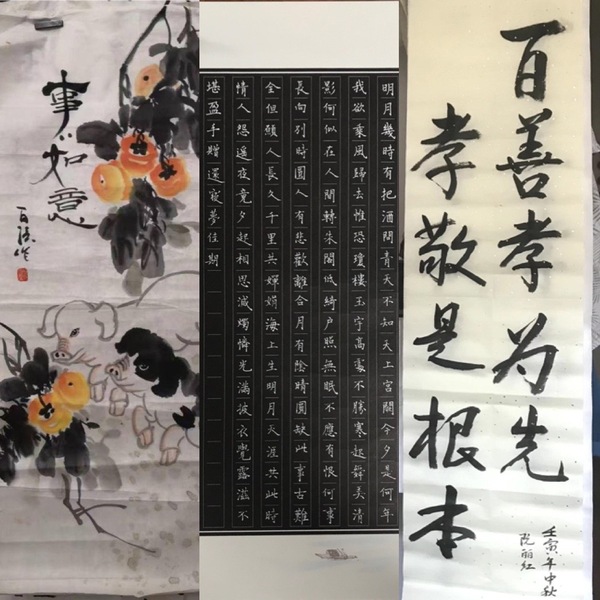 事〻如意
明月幾時有把酒問青天不知天上宮闕今夕是何年
我欲乘風歸去惟恐瓊樓玉宇高處不勝寒起舞弄清
影何似在人間轉朱閣低綺户照無眠不應有恨何事
長向別時圓人有悲歡離合月有陰晴圓缺此事古難
全但願人長久千里共嬋娟海上生明月天涯共此時
情人怨遥夜竟夕起相思滅燭憐光滿披衣覺露滋不
堪盈手贈還寢夢佳期
百善孝为先
孝敬是根本
壬寅年中秋
阮丽红